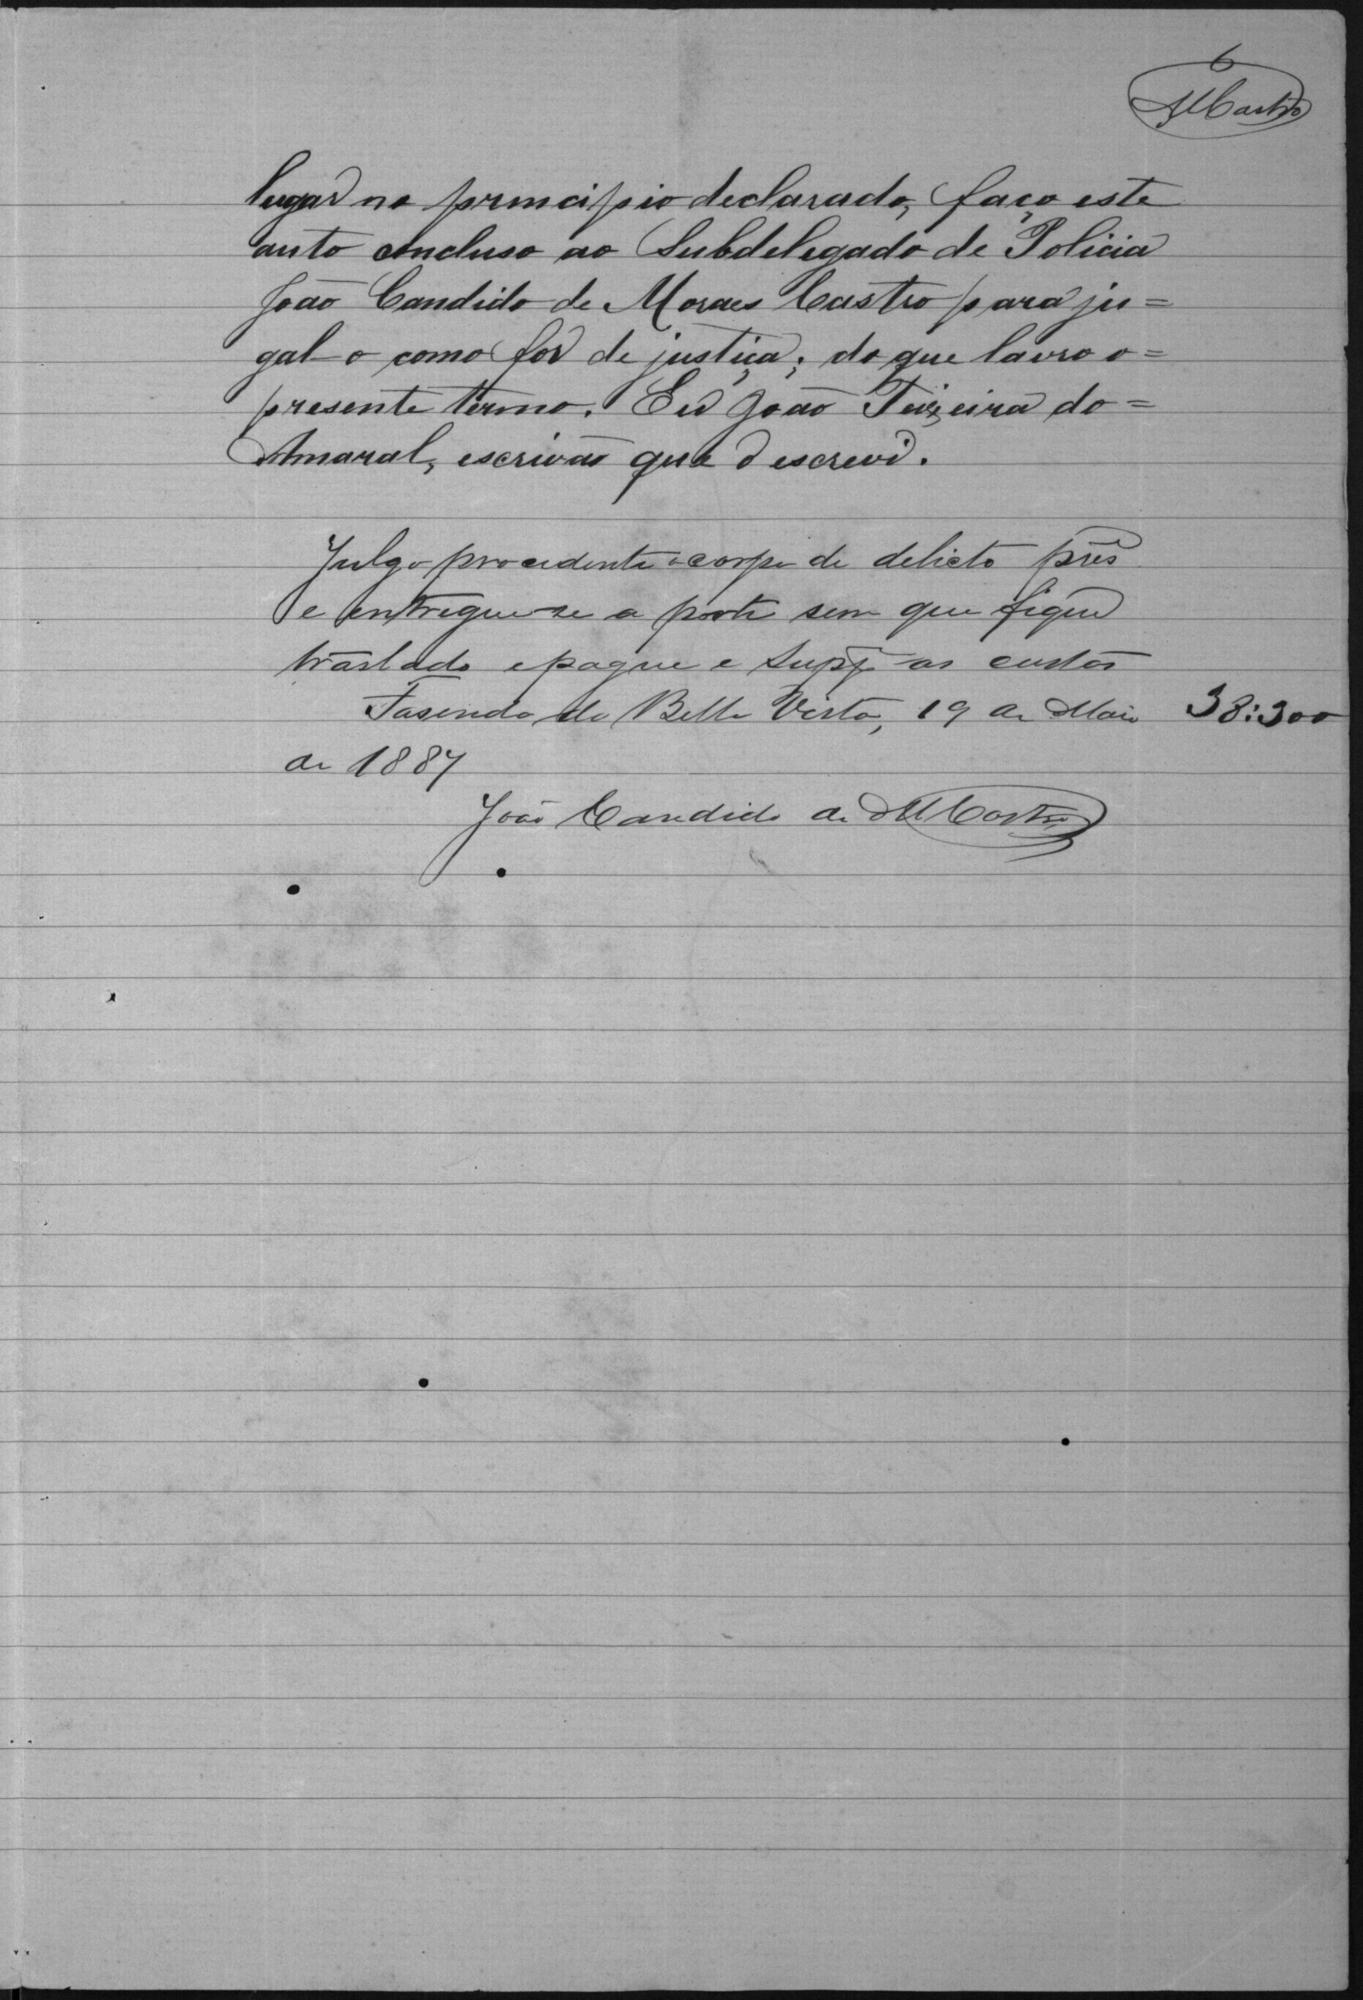 6
MCastro
lugar no principio declarado, faço este
auto concluso ao Subdelegado de Policia
João Candido de Moraes Castro para ju=
gal-o como for de justiça; do que lavro o=
presente termo. Eu João Teixeira do=
Amaral, escrivão que o escrevi.
Julgo procedente o corpo de delicto
e entregue-se a parte sem que fique
traslado e pague e as custas
Fasenda da Bella Vista, 19 de Maio 38:300
de 1887
João Candido de MCastro